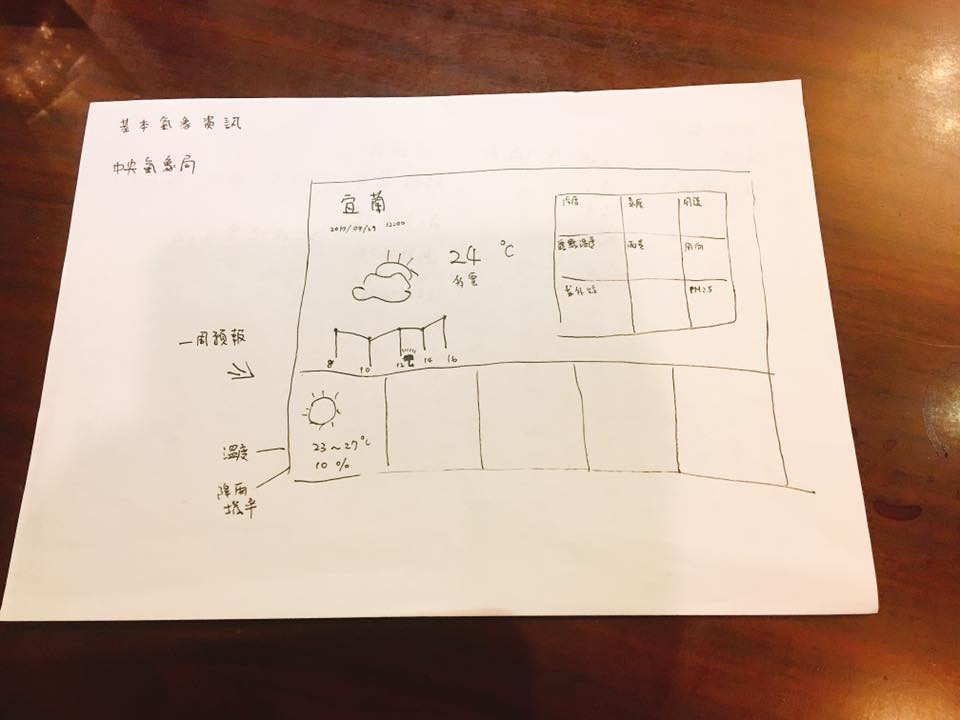 基本氣象資訊
中央氣象局
宜蘭
2017/04/29 12:00
24 °C
多雲
濕度
風速
露點溫度
雨量
風向
紫外線
PM2.5
一周預報
8 10 12 14 16
23～27°C
10 %
溫度
降雨
機率